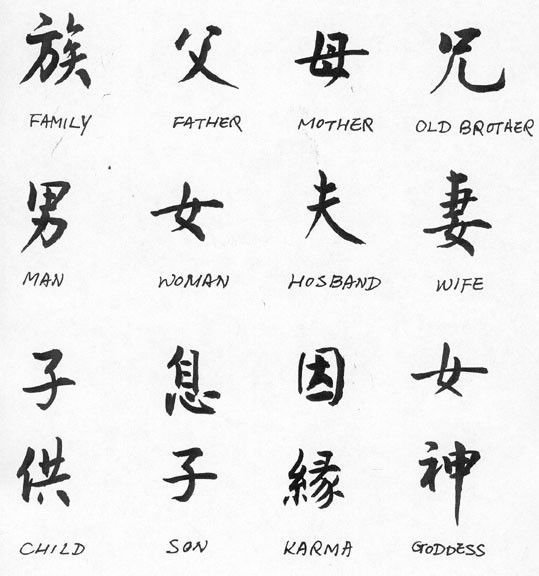 族 父 母 兄
FAMILY FATHER MOTHER OLD BROTHER
男 女 夫 妻
MAN WOMAN HOSBAND WIFE
子 息 因 女
供 子 縁 神
CHILD SON KARMA GODDESS